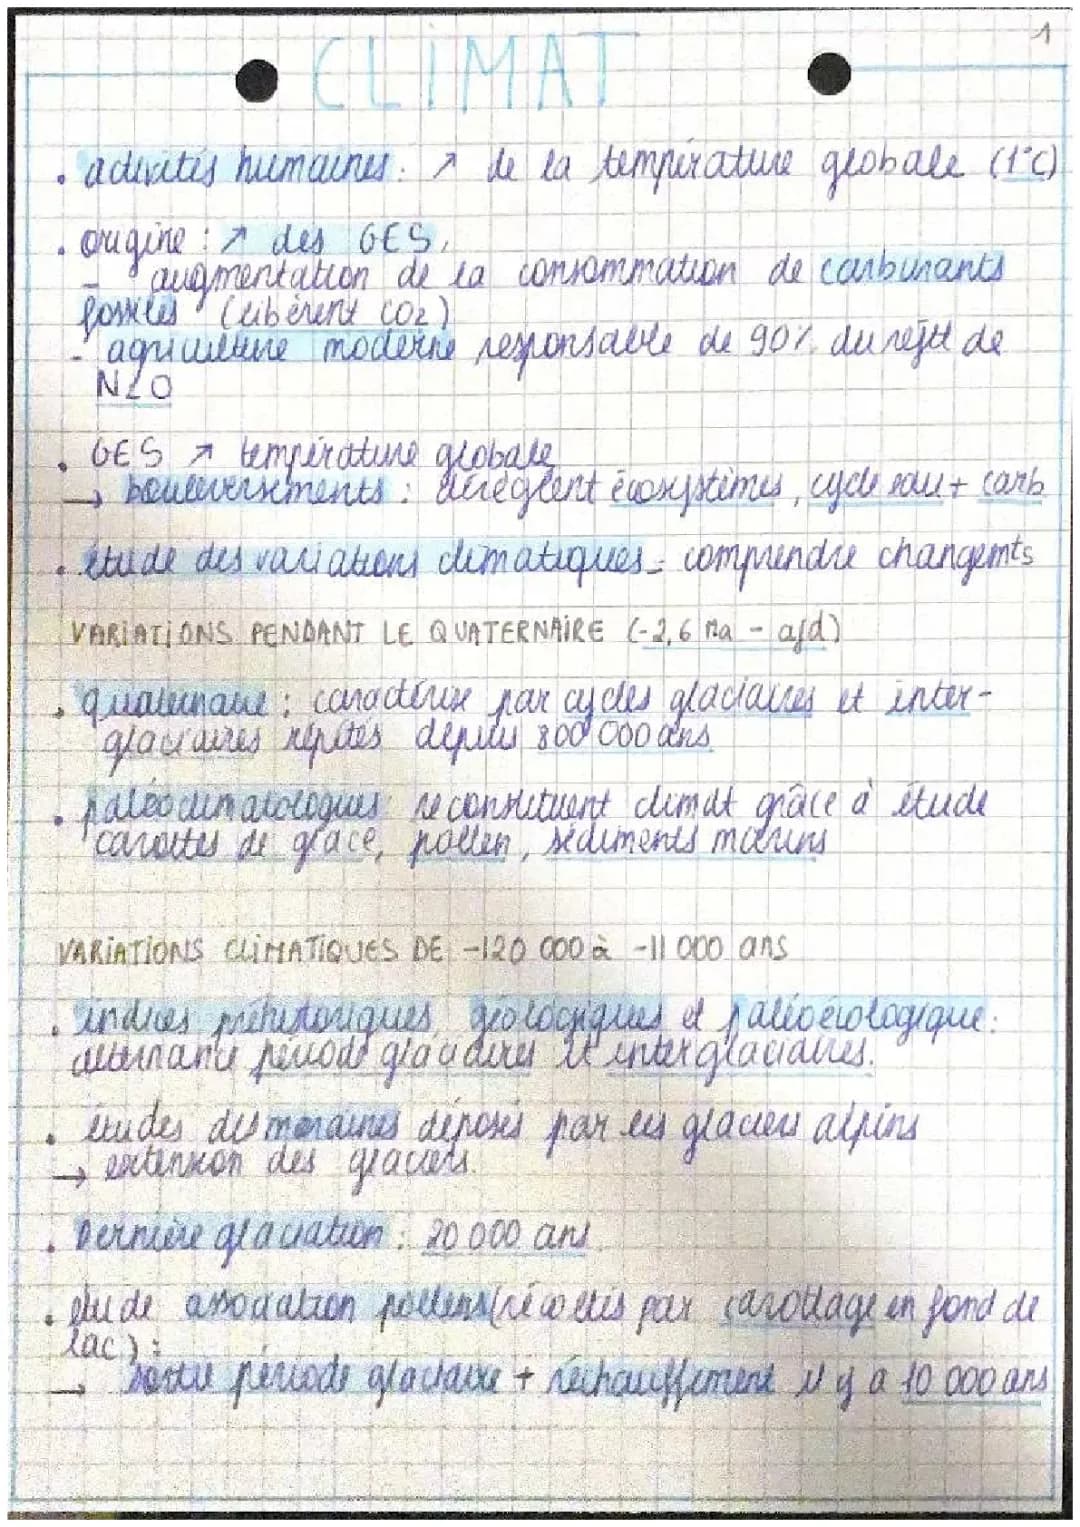 1
CLIMAT
• activités humaines : ↗ de la température globale (1°C)
• origine : ↗ des GES,
- augmentation de la consommation de carburants
fossiles (libèrent CO2)
- agriculture moderne responsable de 90% du rejet de
N2O
• GES ↗ température globale
→ bouleversements : dérèglent écosystèmes, cycle eau + carb
• étude des variations climatiques - comprendre changemts
VARIATIONS PENDANT LE QUATERNAIRE (-2,6 Ma - ajd)
• quaternaire : caractérisé par cycles glaciaires et inter-
glaciaires répétés depuis 800 000 ans
• paléoclimatologues reconstituent climat grâce à étude
carottes de glace, pollen, sédiments marins
VARIATIONS CLIMATIQUES DE -120 000 à -11 000 ans
• indices préhistoriques, géologiques et paléoécologique :
alternance période glaciaires et interglaciaires.
• études des moraines déposés par les glaciers alpins
→ extension des glaciers.
• Dernière glaciation : 20 000 ans
• étude association pollens (récoltés par carottage en fond de
lac) :
→ sortie période glaciaire + réchauffement il y a 10 000 ans